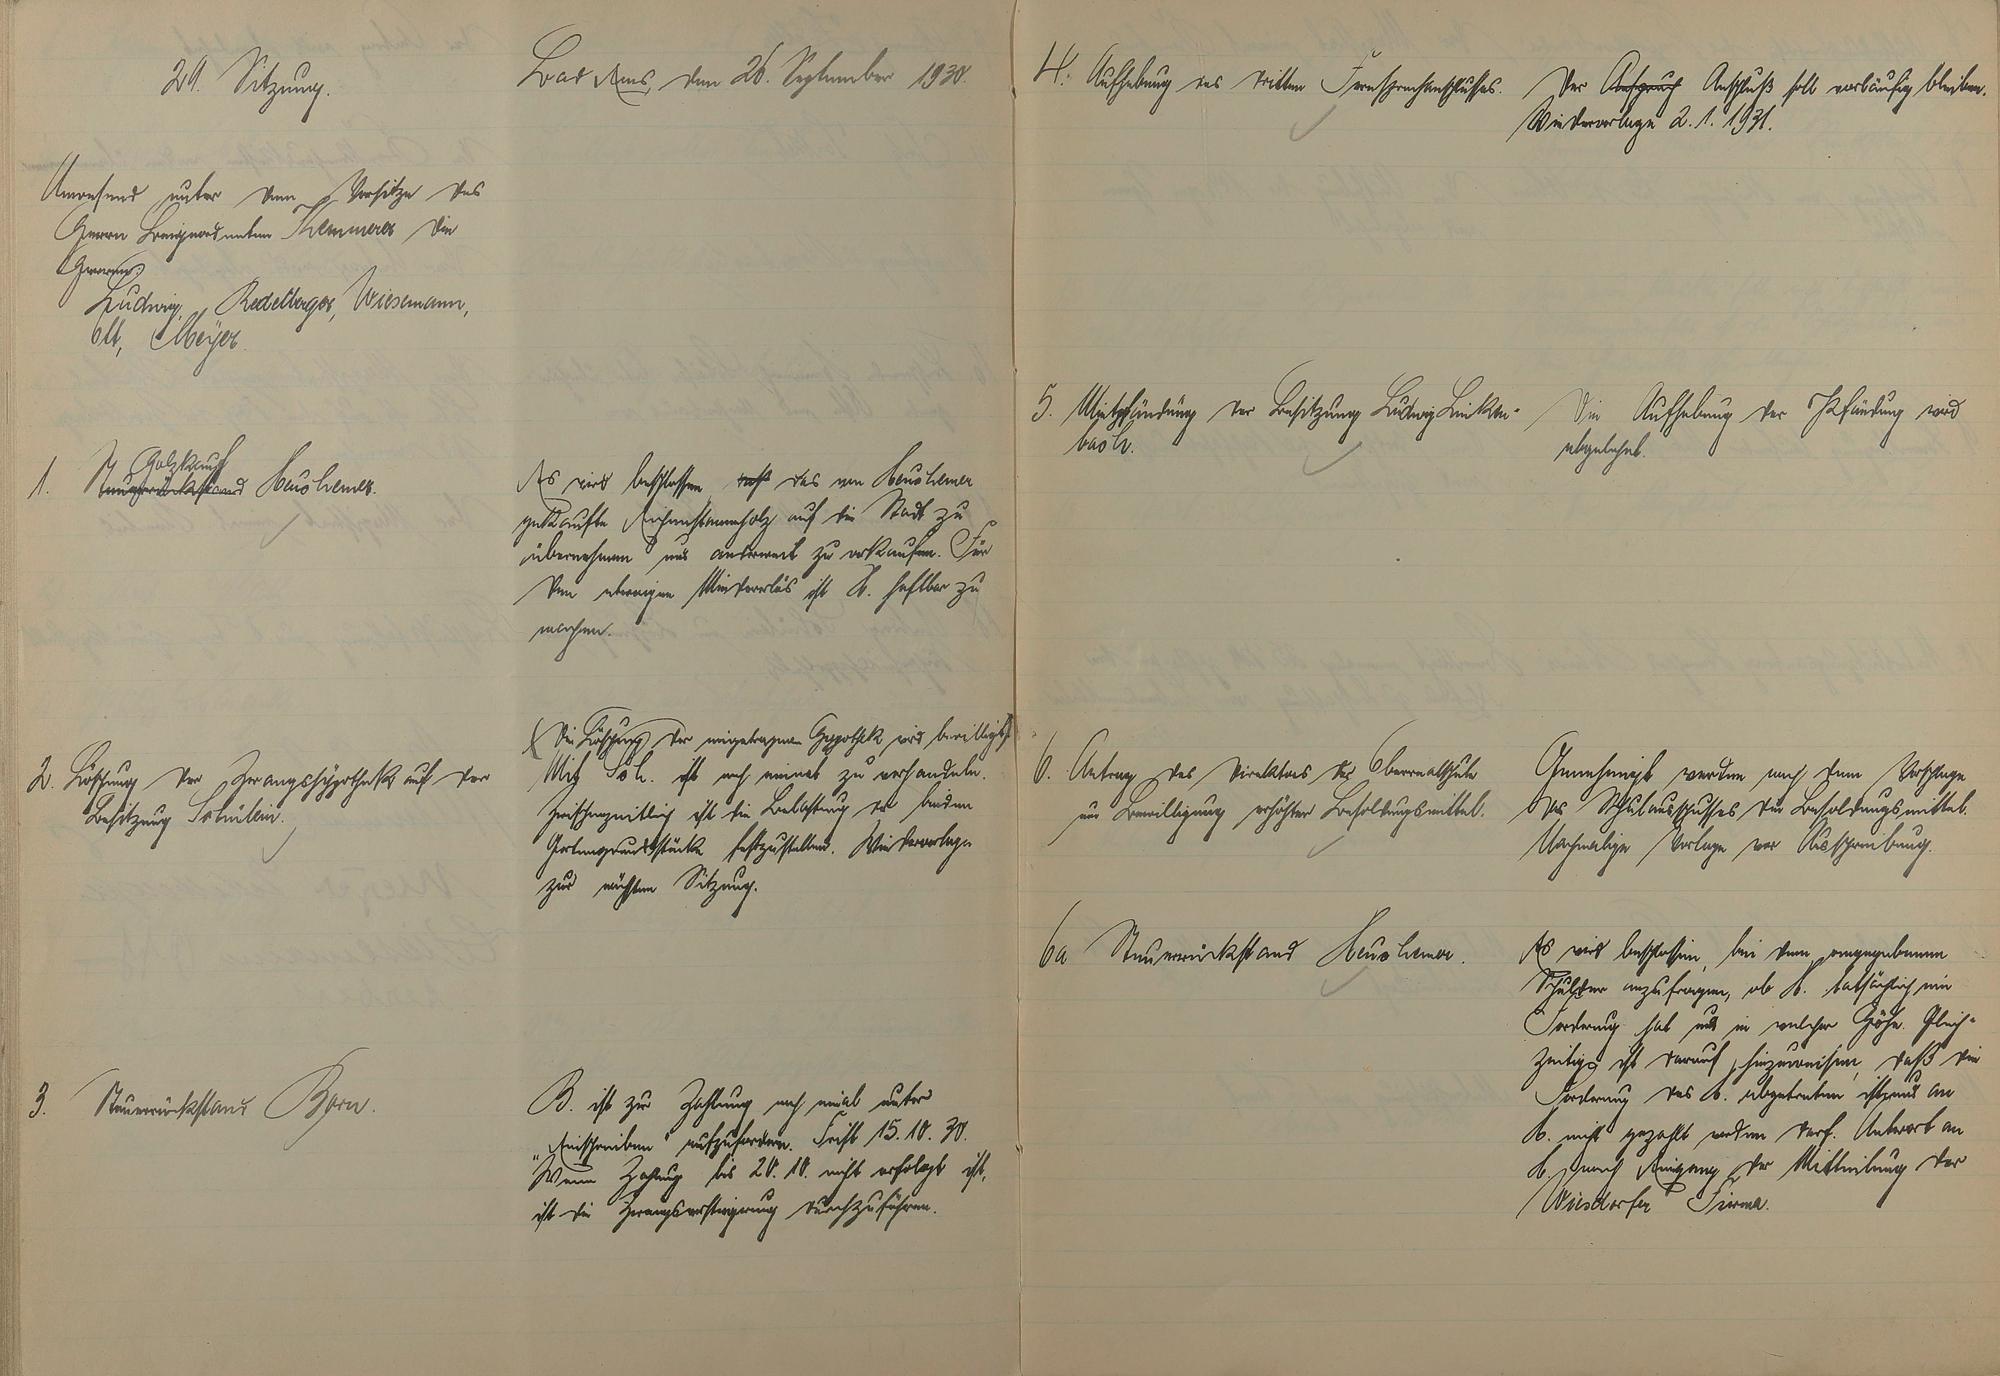 29. Sitzung.
Bad Ems, den 26. September 1930.
Anwesend unter dem Vorsitze des
Herrn Beigeordneten Kemmerer die
Herren:
Ludwig, Redelberger, Wiesemann,
Ott, Meÿer.
1. Holzkauf
Steuerrückstand Heushemer.
Es wird beschlossen, daß das von Heushemer
gekaufte Eichenstammholz auf die Stadt zu
übernehmen und anderweit zu verkaufen. Für
den etwaigen Mindererlös ist H. haftbar zu
machen.
2. Löschung der Zwangshypothek auf der
Besitzung Schülein.
(Die Löschung der eingetragenen Hypothek wird bewilligt.)
Mit Sch. ist noch einmal zu verhandeln.
Zwischenzeitlich ist die Belastung der beiden
Gartengrundstücke festzustellen. Wiedervorlage
zur nächsten Sitzung.
3. Steuerrückstand Born.
B. ist zur Zahlung noch einmal unter
„Einschreiben" aufzufordern. Frist 15.10.30.
Wenn Zahlung bis 20.10. nicht erfolgt ist,
ist die Zwangsversteigerung durchzuführen.
4. Aufhebung des dritten Fernsprechanschlusses.
Der Anspruch Anschluß soll vorläufig bleiben.
Wiedervorlage 2.1.1931.
5. Mietpfändung der Besitzung Ludwig Linken-
bach.
Die Aufhebung der Pfändung wird
abgelehnt.
6. Antrag des Direktors der Oberrealschule
um Bewilligung erhöhter Besoldungsmittel.
Genehmigt werden nach dem Vorschlage
des Schulausschusses die Besoldungsmittel.
Nochmalige Vorlage vor Ausschreibung.
6a Steuerrückstand Heushemer.
Es wird beschlossen, bei dem angegebenen
Schuldner anzufragen, ob H. tatsächlich eine
Forderung hat und in welcher Höhe. Gleich-
zeitig ist darauf hinzuweisen, daß die
Forderung des H. abgetreten ist und an
H. nicht gezahlt werden darf. Antwort an
H. nach Eingang der Mitteilung der
Wiesdorfer Firma.